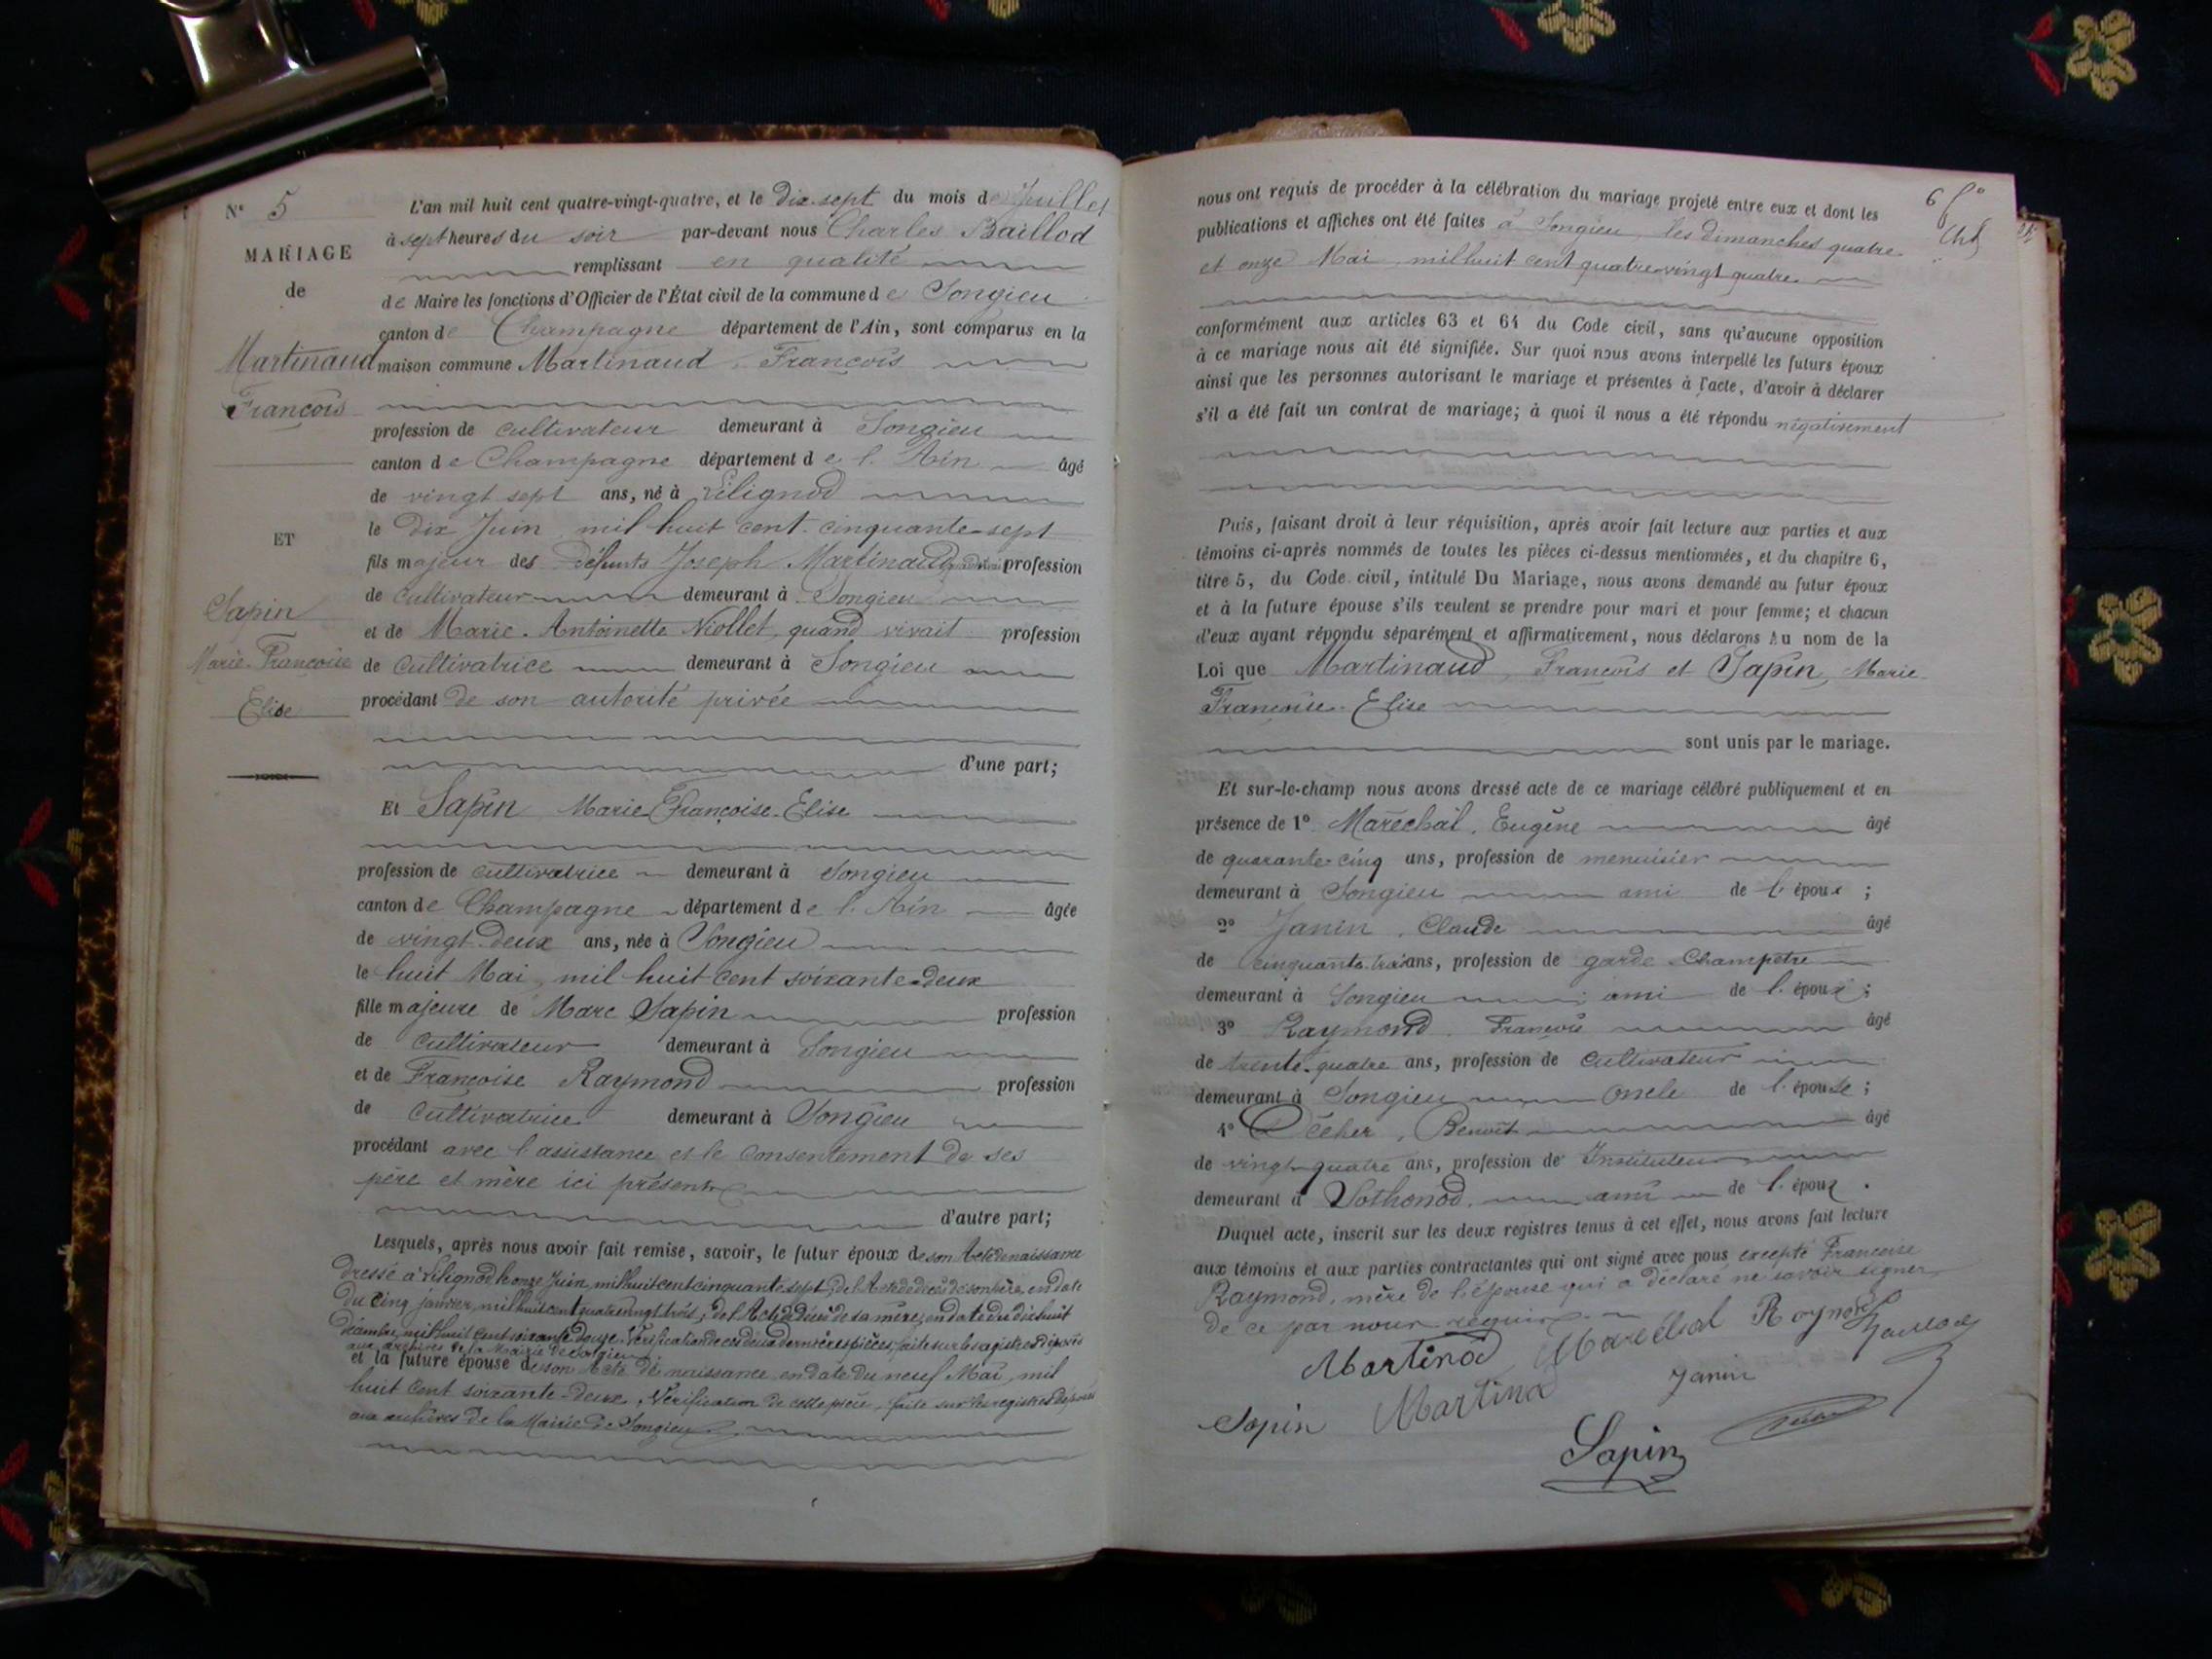 N° 5
MARIAGE
de
Martinaud
François
ET
Sapin
Marie Françoise
Elise
L'an mil huit cent quatre-vingt-quatre, et le Dix-sept du mois de Juillet
à sept heures du soir par-devant nous Charles Baillod
remplissant en qualité
de Maire les fonctions d'Officier de l'État civil de la commune de Songieu
canton de Champagne département de l'Ain, sont comparus en la
maison commune Martinaud, François
profession de cultivateur demeurant à Songieu
canton de Champagne département de l'Ain âgé
de vingt sept ans, né à Lilignod
le Dix Juin mil huit cent cinquante-sept
fils majeur des défunts Joseph Martinaud, quand vivait profession
de cultivateur demeurant à Songieu
et de Marie-Antoinette Niollet, quand vivait profession
de cultivatrice demeurant à Songieu
procédant de son autorité privée
d'une part;
Et Sapin Marie Françoise-Elise
profession de cultivatrice demeurant à Songieu
canton de Champagne département de l'Ain âgée
de vingt-deux ans, née à Songieu
le huit Mai, mil huit cent soixante-deux
fille majeure de Marc Sapin profession
de Cultivateur demeurant à Songieu
et de Françoise Raymond profession
de Cultivatrice demeurant à Songieu
procédant avec l'assistance et le consentement de ses
père et mère ici présents
d'autre part;
Lesquels, après nous avoir fait remise, savoir, le futur époux de son Acte de naissance
dressé à Lilignod le onze Juin, mil huit cent cinquante sept; de l'Acte de décès de son père, en date
du cinq janvier, mil huit cent quatre vingt trois; de l'Acte de décès de sa mère, en date du dix huit
décembre, mil huit cent soixante douze. Vérification de ces deux dernières pièces, faite sur les registres déposés
aux archives de la Mairie de Songieu
et la future épouse de son Acte de naissance, en date du neuf Mai, mil
huit cent soixante-deux, Vérification de cette pièce, faite sur les registres déposés
aux archives de la Mairie de Songieu
6 f°
nous ont requis de procéder à la célébration du mariage projeté entre eux et dont les
publications et affiches ont été faites à Songieu, les dimanches quatre
et onze Mai, mil huit cent quatre-vingt quatre
conformément aux articles 63 et 64 du Code civil, sans qu'aucune opposition
à ce mariage nous ait été signifiée. Sur quoi nous avons interpellé les futurs époux
ainsi que les personnes autorisant le mariage et présentes à l'acte, d'avoir à déclarer
s'il a été fait un contrat de mariage; à quoi il nous a été répondu négativement
Puis, faisant droit à leur réquisition, après avoir fait lecture aux parties et aux
témoins ci-après nommés de toutes les pièces ci-dessus mentionnées, et du chapitre 6,
titre 5, du Code civil, intitulé Du Mariage, nous avons demandé au futur époux
et à la future épouse s'ils veulent se prendre pour mari et pour femme; et chacun
d'eux ayant répondu séparément et affirmativement, nous déclarons Au nom de la
Loi que Martinaud, François et Sapin, Marie
Françoise-Elise
sont unis par le mariage.
Et sur-le-champ nous avons dressé acte de ce mariage célébré publiquement et en
présence de 1° Maréchal, Eugène âgé
de quarante-cinq ans, profession de menuisier
demeurant à Songieu ami de l'époux ;
2° Janin, Claude âgé
de cinquante-trois ans, profession de garde-Champêtre
demeurant à Songieu ami de l'époux ;
3° Raymond, François âgé
de trente-quatre ans, profession de cultivateur
demeurant à Songieu oncle de l'épouse ;
4° Décher, Benoît âgé
de vingt-quatre ans, profession de Instituteur
demeurant à Sothonod ami de l'époux.
Duquel acte, inscrit sur les deux registres tenus à cet effet, nous avons fait lecture
aux témoins et aux parties contractantes qui ont signé avec nous excepté Françoise
Raymond, mère de l'épouse qui a déclaré ne savoir signer,
de ce par nous requise.
Martinod Maréchal Raymond Baillod
Sapin Martinod Janin
Sapin